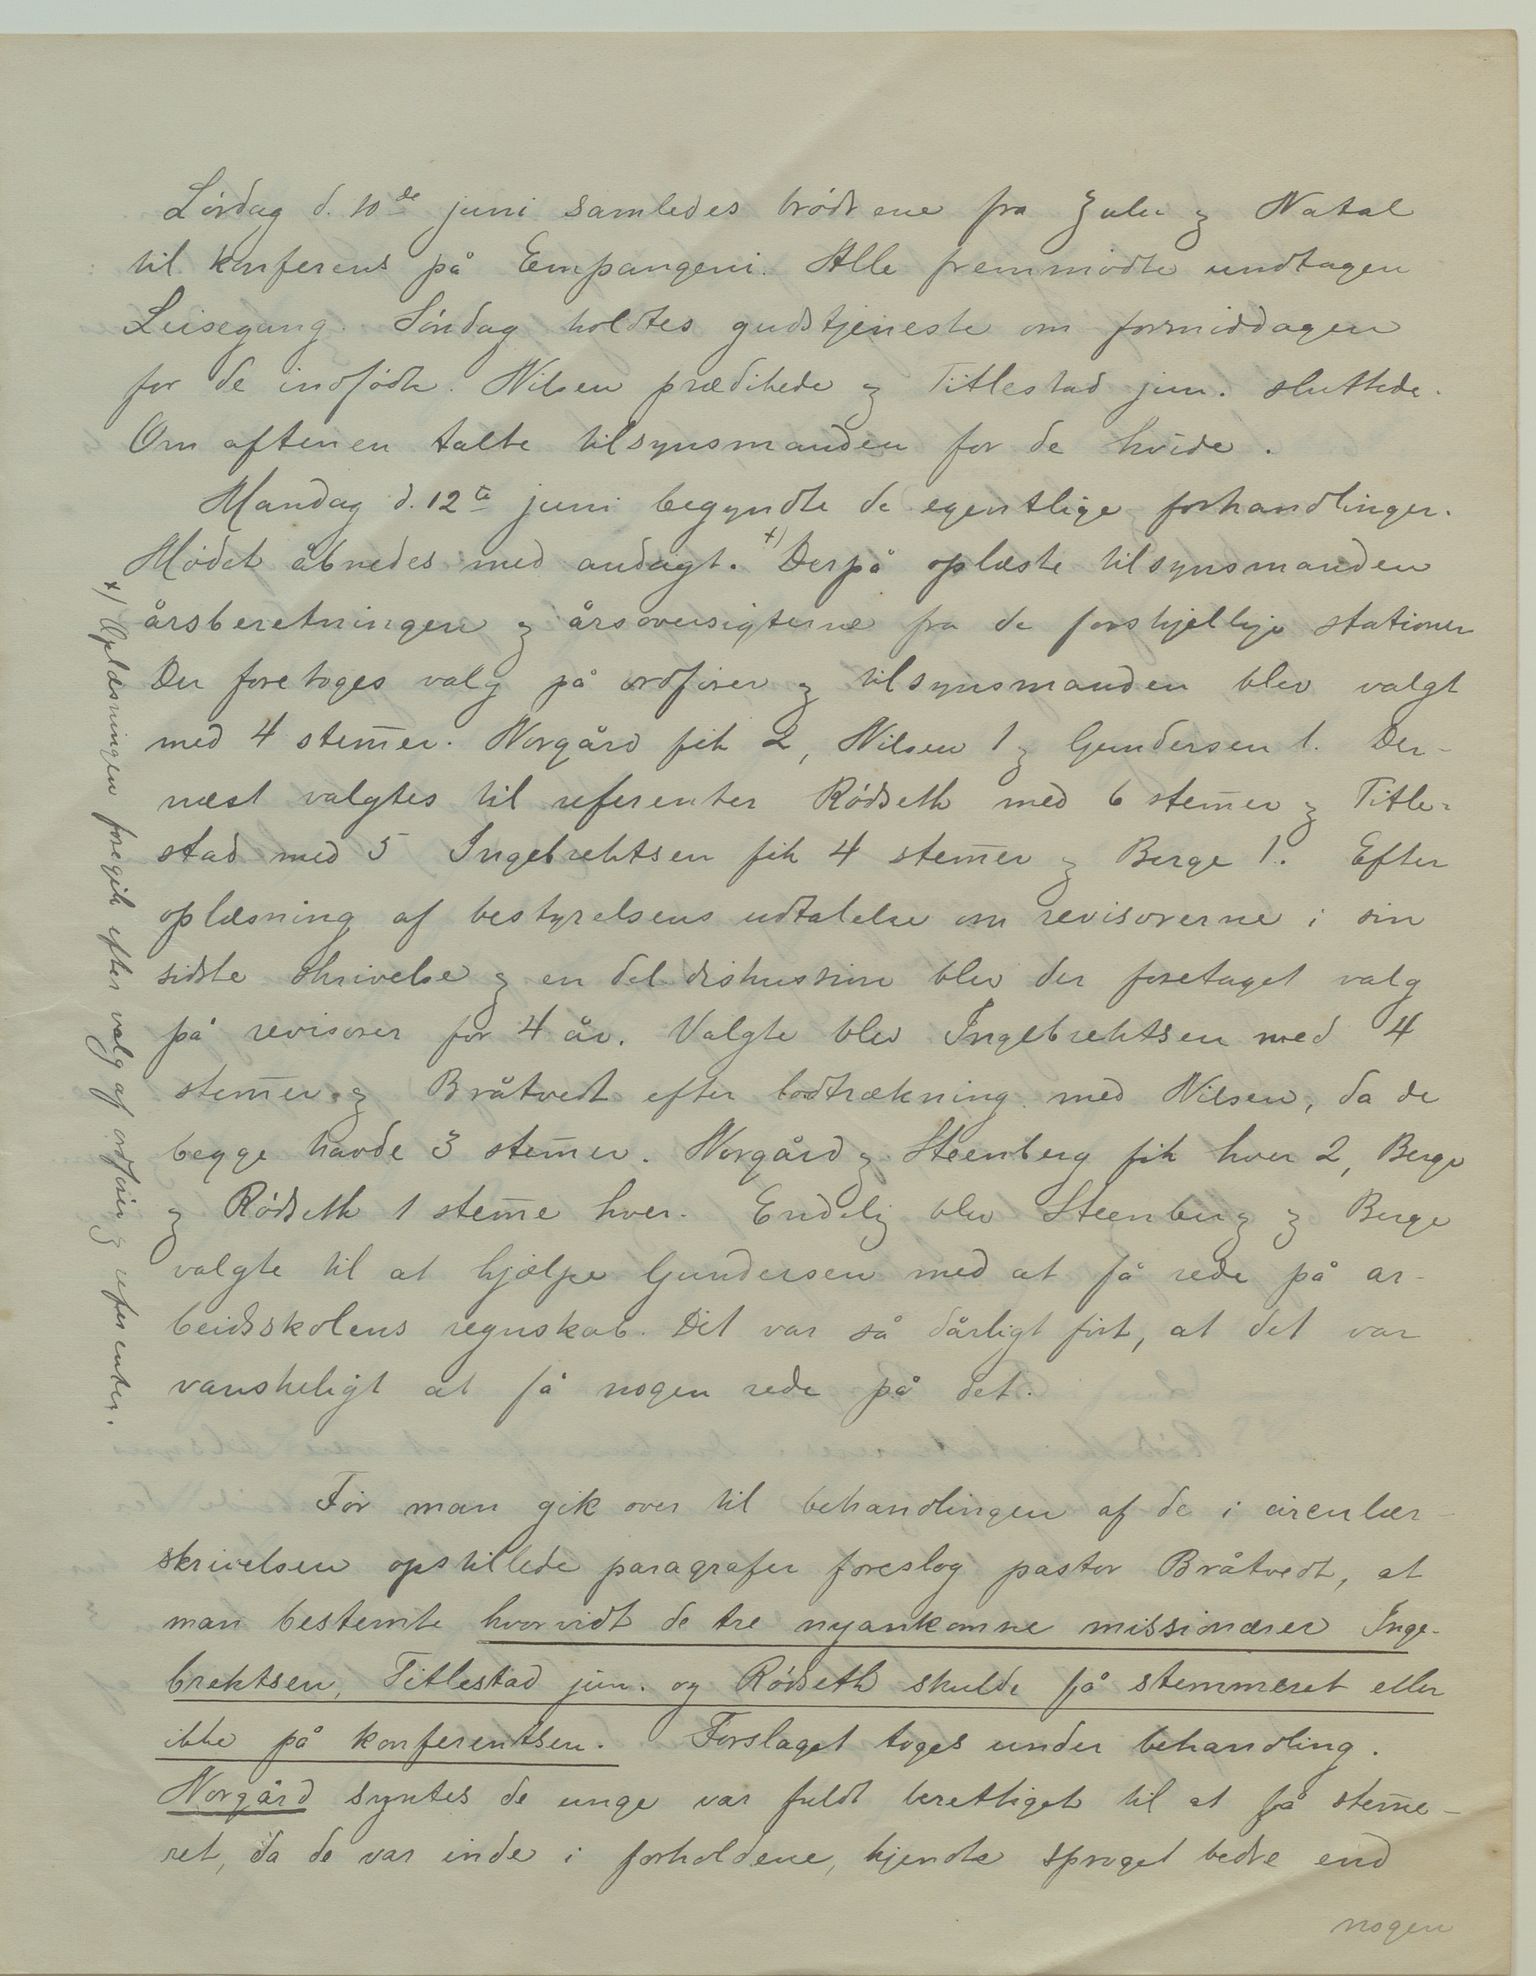 Lørdag d. 10de juni samledes brødrene fra Zulu og Natal
til konferens på Empangeni. Alle fremmødte undtagen
Leisegang. Søndag holdtes gudstjeneste om formiddagen
for de indfødte. Nilsen prædikede og Titlestad jun. sluttede.
Om aftenen talte tilsynsmanden for de hvide.
Mandag d. 12te juni begyndte de egentlige forhandlinger.
Mødet åbnedes med andagt. x) Derpå oplæste tilsynsmanden
årsberetningen og årsoversigterne fra de forskjellige stationer
Der foretoges valg på ordfører og tilsynsmanden blev valgt
med 4 stem̄er. Norgård fik 2, Nilsen 1 og Gundersen 1. Der-
næst valgtes til referenter Rødseth med 6 stem̄er og Title-
stad med 5 Ingebrektsen fik 4 stem̄er og Berge 1. Efter
oplæsning af bestyrelsens udtalelse om revisorerne i sin
sidste skrivelse og en del diskussion blev der foretaget valg
på revisorer for 4 år. Valgte blev Ingebrektsen med 4
stem̄er og Bråtvedt efter lodtrækning med Nilsen, da de
begge havde 3 stem̄er. Norgård og Steenberg fik hver 2, Berge
og Rødseth 1 stem̄e hver. Endelig blev Steenberg og Berge
valgte til at hjælpe Gundersen med at få rede på ar-
beidsskolens regnskab. Det var så dårligt ført, at det var
vanskeligt at få nogen rede på det.
x) Oplæsningen foregik efter valg af ordfører og referenter.
Før man gik over til behandlingen af de i circulær-
skrivelsen opstillede paragrafer foreslog pastor Bråtvedt, at
man bestemte hvorvidt de tre nyankomne missionærer Inge-
brektsen, Titlestad jun. og Rødseth skulde få stemmeret eller
ikke på konferentsen. Forslaget toges under behandling.
Norgård syntes de unge var fuldt berettiget til at få stem̄e-
ret, da de var inde i forholdene, kjendte sproget bedre end
nogen